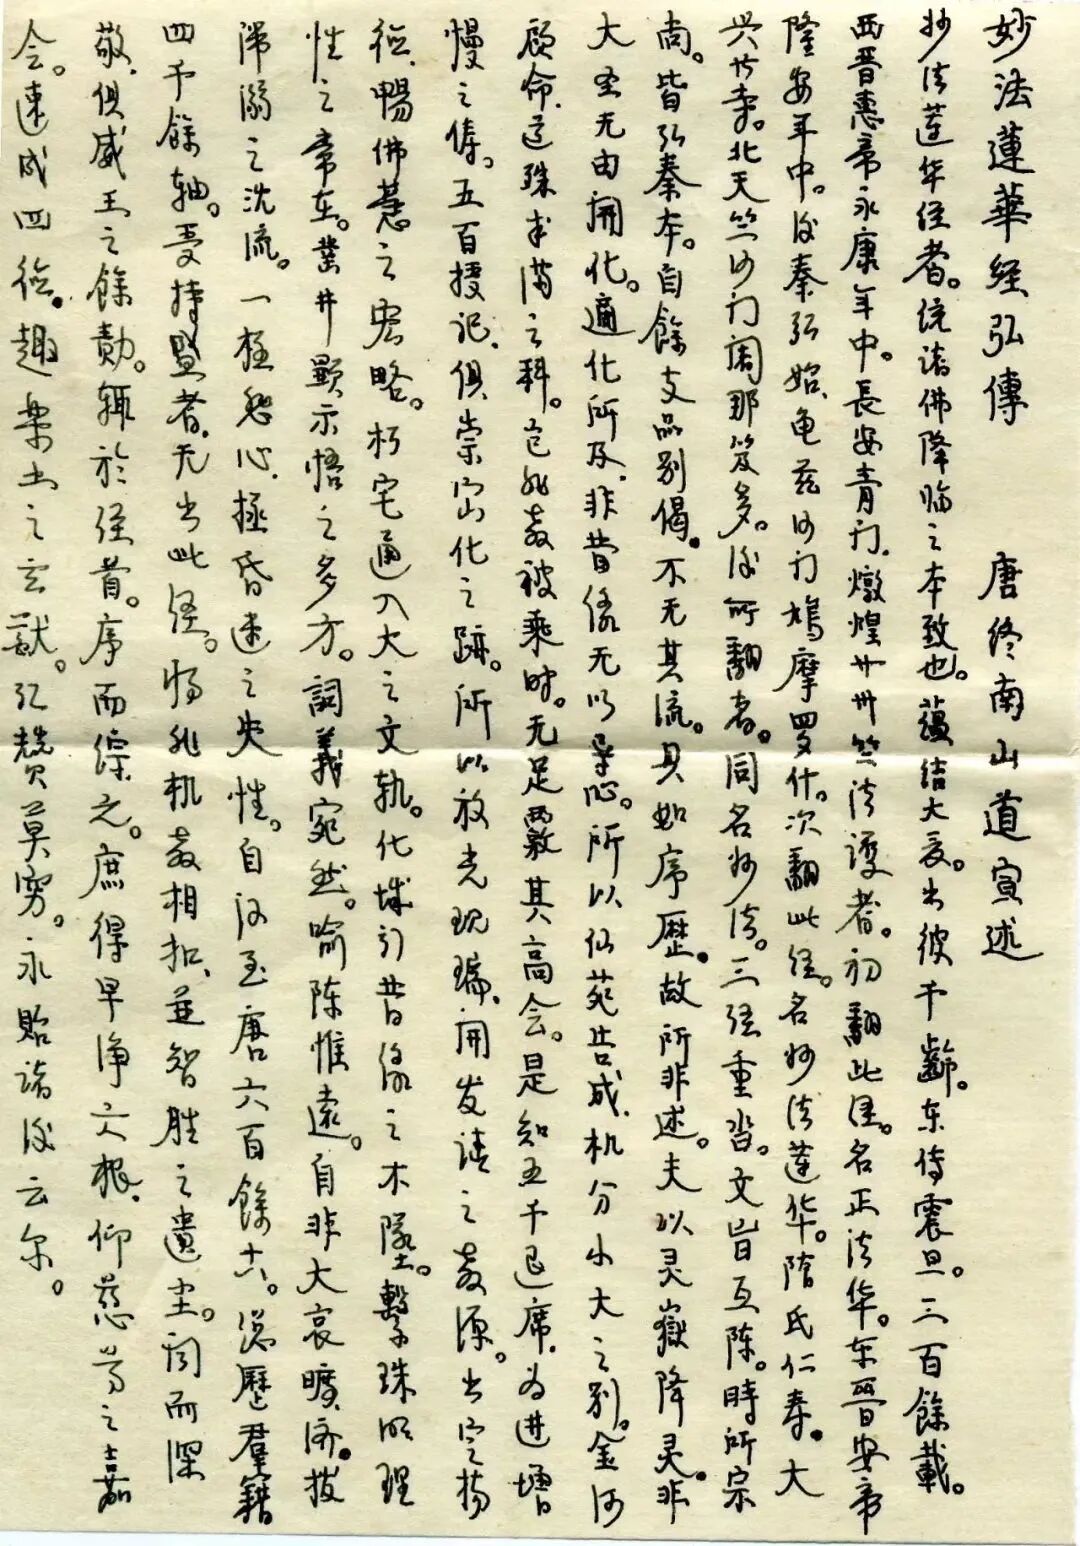 妙法蓮華经弘傳　唐终南山道宣述
妙法莲华经者。统诸佛降临之本致也。蕴结大夏。出彼千齡。东传震旦。三百餘載。
西晋惠帝永康年中。長安青门.燉煌井卅竺法護者。初翻此经。名正法华。东晋安帝
隆安年中。後秦弘始.龟兹沙门鳩摩罗什。次翻此经。名妙法莲华。隋氏仁寿。大
兴善寺。北天竺沙门阇那笈多。後所翻者。同名妙法。三经重沓。文旨互陈。時所宗
尚。皆弘秦本。自餘支品别偈。不无其流。具如序歷。故所非述。夫以灵嶽降灵。非
大圣无由開化。適化所及.非昔缘无以导心。所以仙苑告成.机分小大之别。金河
顾命.道殊半满之科。岂非教被乘时。无足覈其高会。是知五千退席.为进增
慢之俦。五百授记.俱崇密化之跡。所以放光现瑞.開发请之教源。出定扬
德.暢佛慧之宏略。朽宅通入大之文軌。化城引昔缘之不墜。繫珠明理
性之常在。凿井顯示悟之多方。詞義宛然。喻陈惟遠。自非大哀曠济。拔
滞溺之沈流。一极悲心.拯昏迷之失性。自汉至唐六百餘十六。总歷羣籍
四千餘轴。受持盛者.无出此经。将非机教相扣.並智胜之遺尘。闻而深
敬.俱威王之餘勣。辄於经首。序而综之。庶得早净六根.仰慈尊之嘉
会。速成四德。趣樂土之玄猷。弘赞莫穷。永贻诸後云尔。